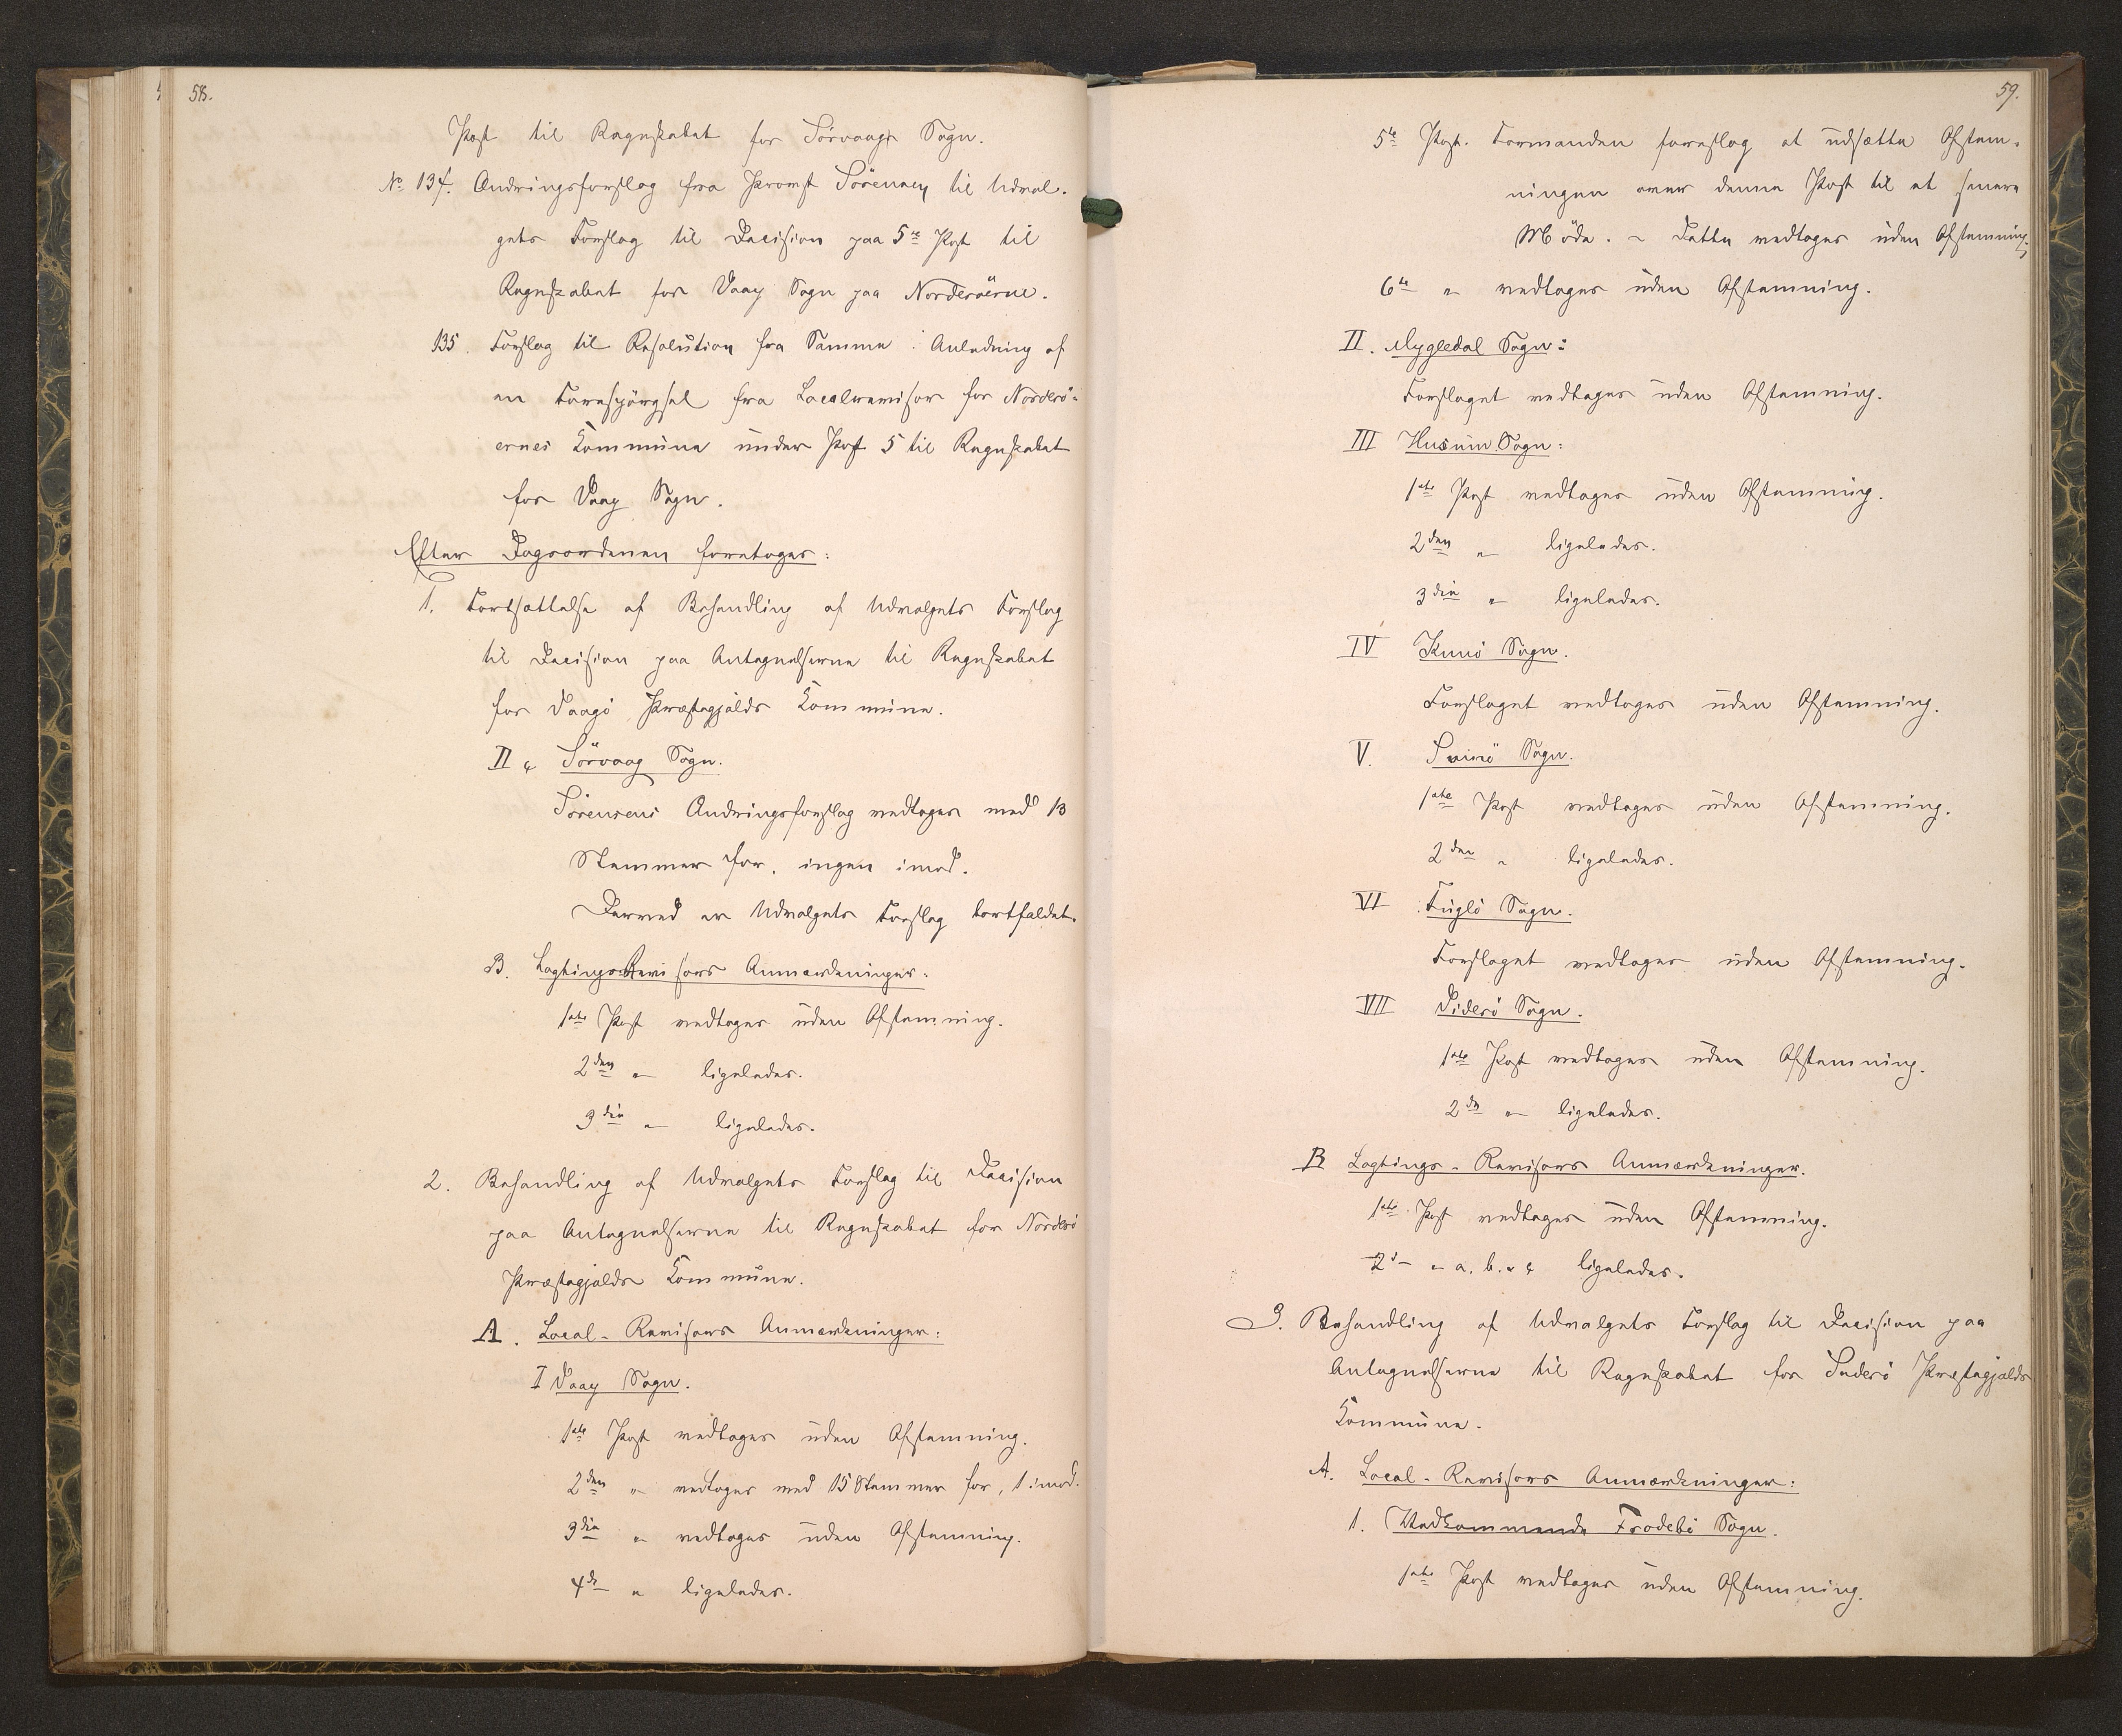 58.
Post til Regnskabet for Sörvaags Sogn.
No 134. Ændringsforslag fra Provst Sörensen til Udval-
gets Forslag til Decision paa 5te Post til
Regnskabet for Vaag Sogn paa Norderöerne.
135. Forslag til Resolution fra Samme i Anledning af
en Forespörgsel fra Localrevisor for Norderö-
ernes Kommune under Post 5 til Regnskabet
for Vaag Sogn.
Efter Dagsordenen foretoges:
1. Fortsættelse af Behandling af Udvalgets Forslag
til Decision paa Antegnelserne til Regnskabet
for Vaagö Præstegjælds Kommune.
II Sörvaag Sogn.
Sörensens Ændringsforslag vedtoges med 13
Stemmer for, ingen imod.
Derved er Udvalgets Forslag bortfaldet.
B. Lagtings-Revisors Anmærkninger:
1ste Post vedtoges uden Afstemning.
2den " ligeledes.
3die " ligeledes.
2. Behandling af Udvalgets Forslag til Decision
paa Antegnelserne til Regnskabet for Norderö
Præstegjælds Kommune.
A. Local-Revisors Anmærkninger:
I Vaag Sogn.
1ste Post vedtoges uden Afstemning.
2den " vedtoges med 15 Stemmer for, 1 imod.
3die " vedtoges uden Afstemning.
4de " ligeledes.
59.
5te Post. Formanden foreslog at udsætte Afstem-
ningen over denne Post til et senere
Möde. - Dette vedtoges uden Afstemning.
6te " vedtoges uden Afstemning.
II. Mygledal Sogn:
Forslaget vedtoges uden Afstemning.
III Husum Sogn:
1ste Post vedtoges uden Afstemning.
2den " ligeledes.
3die " ligeledes.
IV Kunö Sogn.
Forslaget vedtoges uden Afstemning.
V. Svinö Sogn.
1ste Post vedtoges uden Afstemning.
2den " ligeledes.
VI Fuglö Sogn.
Forslaget vedtoges uden Afstemning.
VII Viderö Sogn.
1ste Post vedtoges uden Afstemning.
2den " ligeledes.
B Lagtings-Revisors Anmærkninger.
1ste Post vedtoges uden Afstemning.
2d " a. b. & c ligeledes.
3. Behandling af Udvalgets Forslag til Decision paa
Antegnelserne til Regnskabet for Suderö Præstegjælds
Kommune.
A. Local-Revisors Anmærkninger:
1. Vedkommende Frodebö Sogn.
1ste Post vedtoges uden Afstemning.